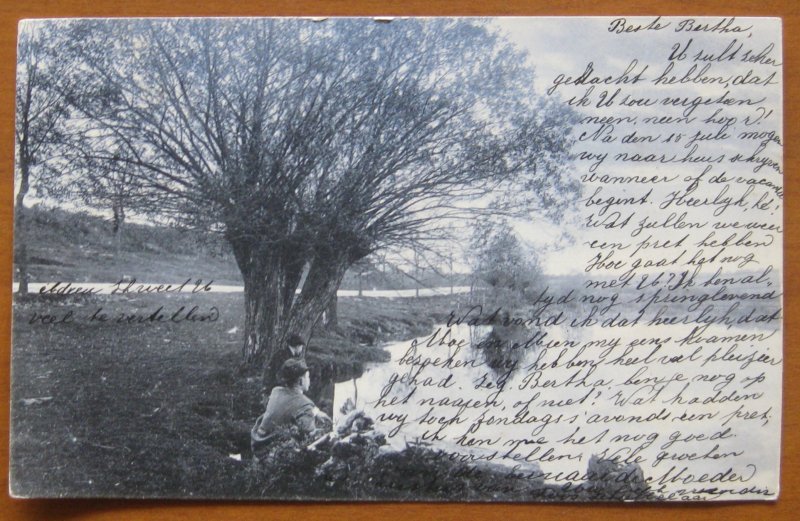 Beste Bertha,
U zult zeker
gedacht hebben, dat
ik U zou vergeten
neen, neen hoor!
Na den 15 Juli mogen
wy naar huis schryven
wanneer of de vacantie
begint. Heerlyk, hè!
Wat zullen we weer
een pret hebben
Hoe gaat het nog
met U? Ik ben al-
tyd nog springlevend
Wat vond ik dat heerlyk, dat
Moe en Mien my eens kwamen
bezoeken wy hebben heel veel pleizier
gehad. Zeg Bertha, ben je nog op
het naaien, of niet? Wat hadden
wy toch Zondags s'avonds een pret,
ik kan me het nog goed
voorstellen. Vele groeten
Moeder
Ik weet U
veel te vertellen